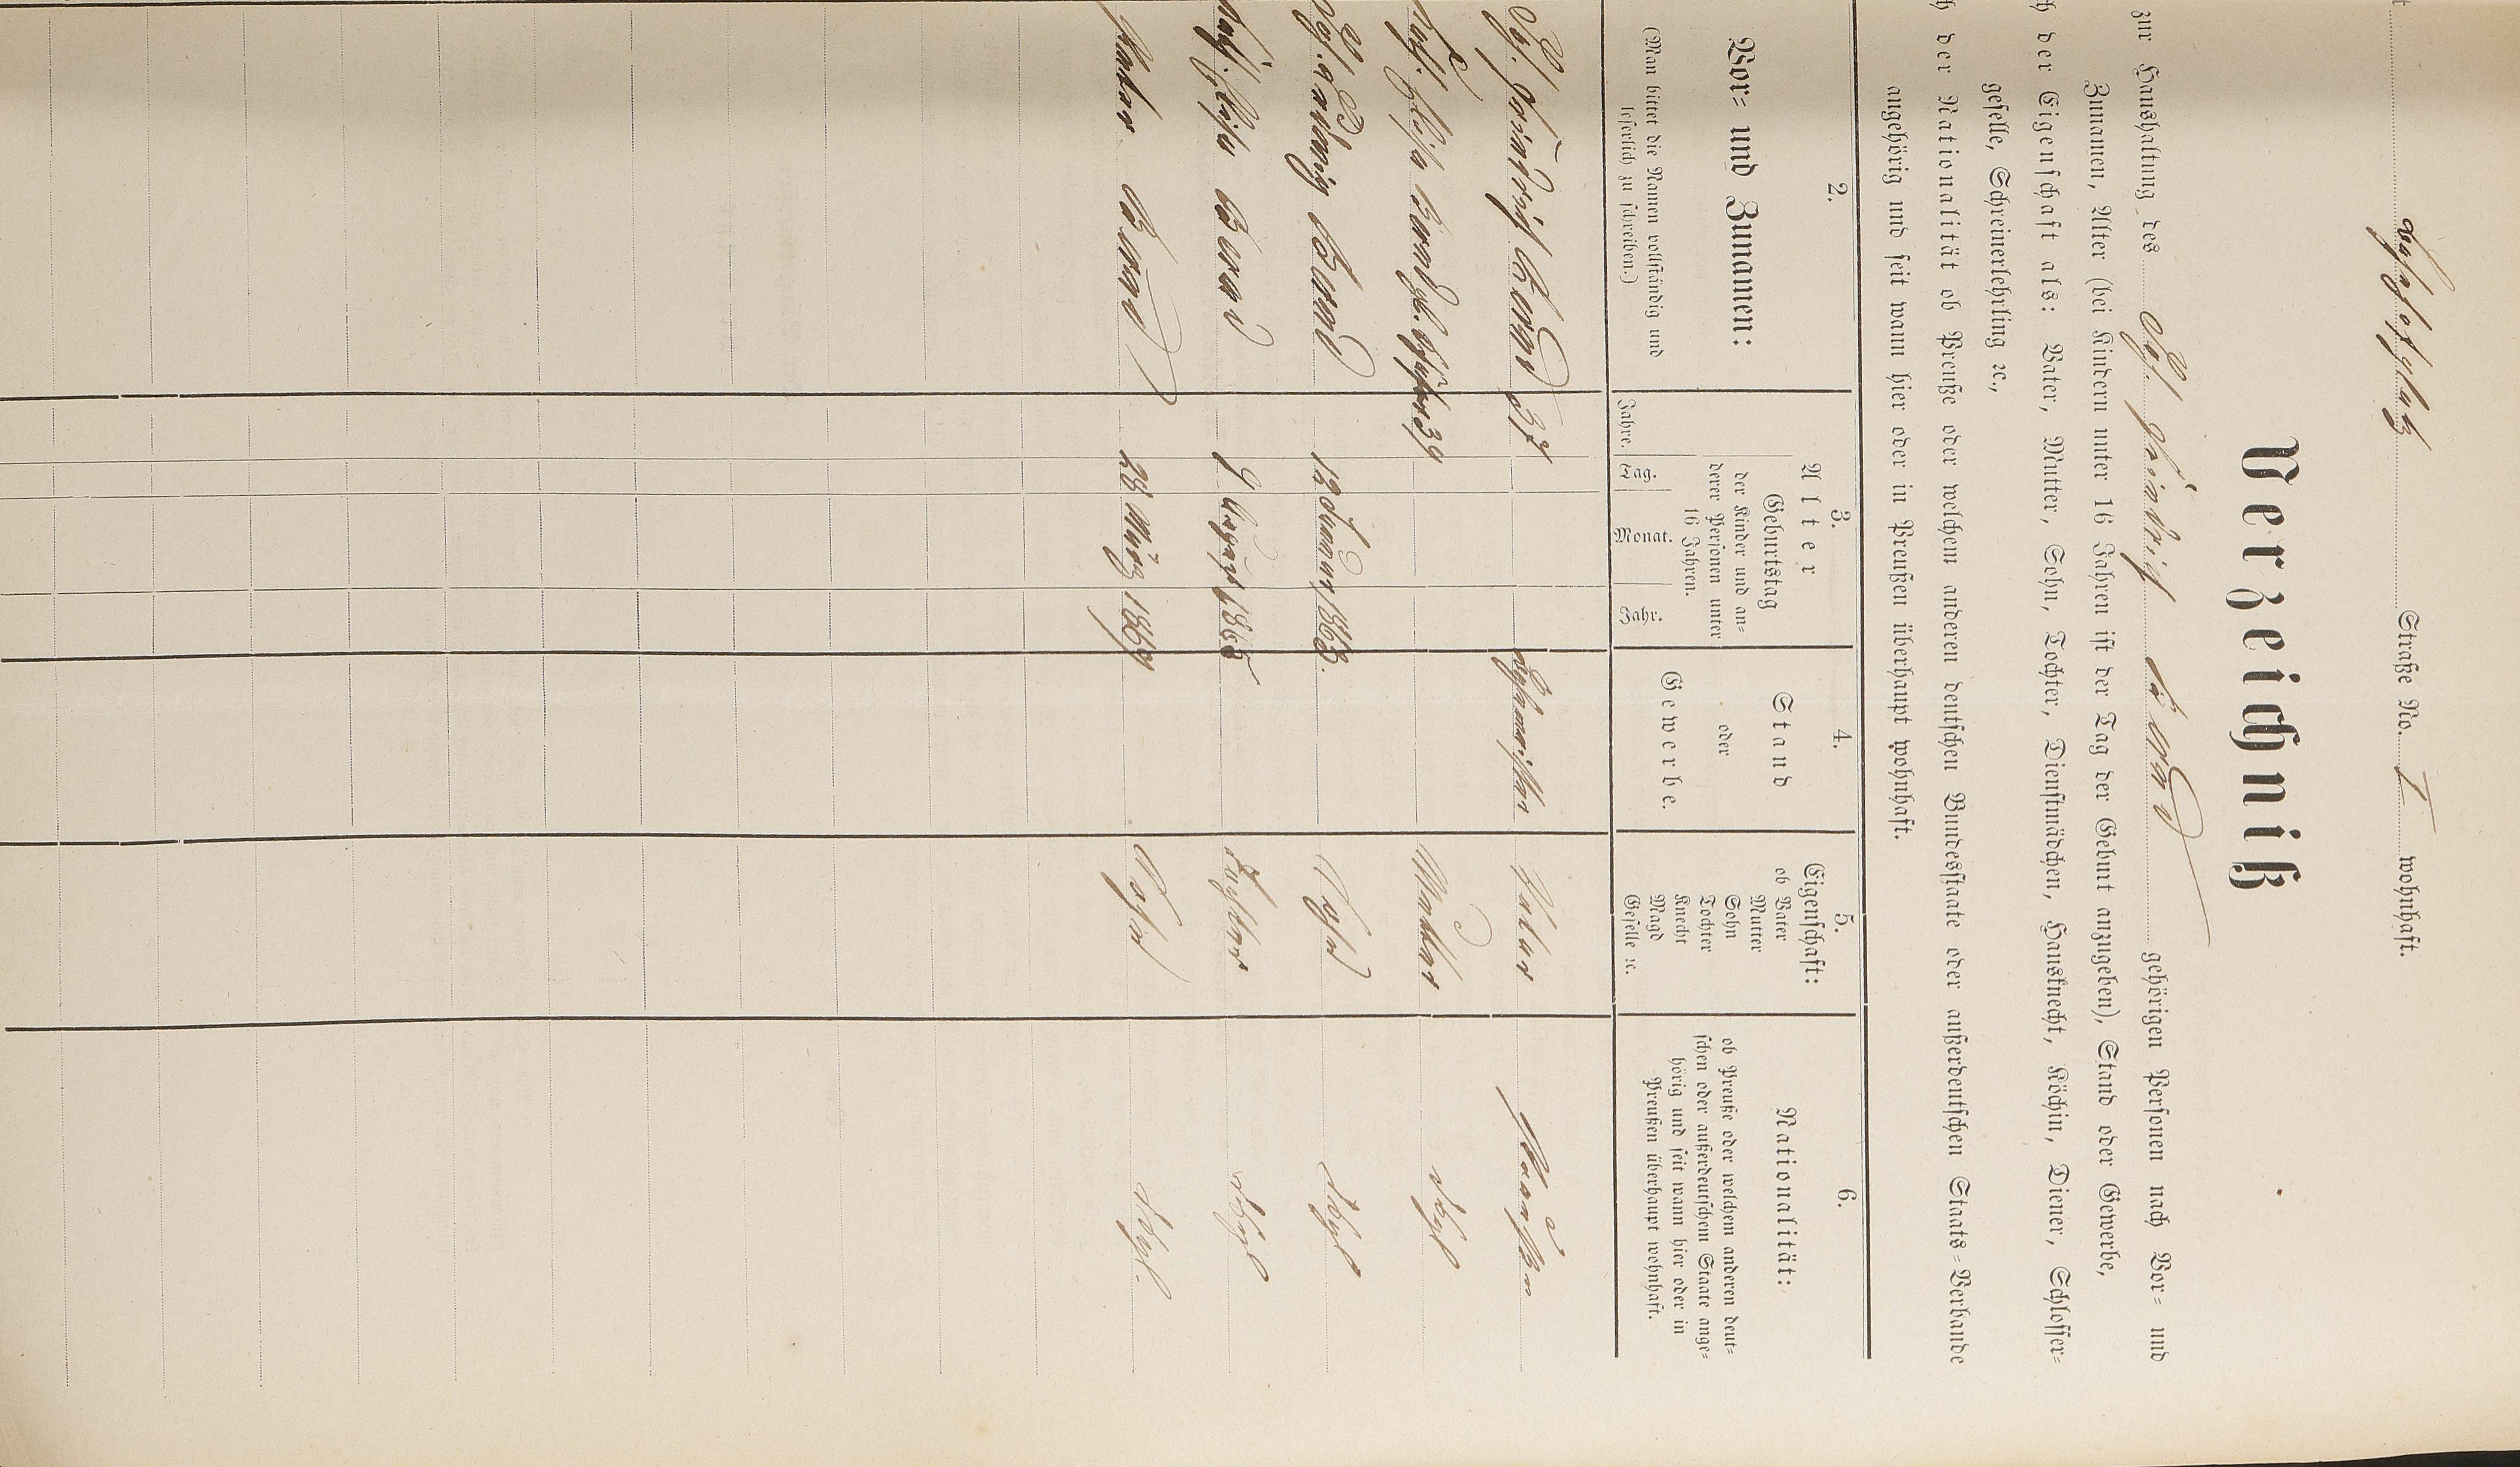 Straße No. I wohnhaft.
Verzeichniß
zur Haushaltung des Ph. Heinrich Bund gehörigen Personen nach Vor= und
Zunamen, Alter (bei Kindern unter 16 Jahren ist der Tag der Geburt anzugeben), Stand oder Gewerbe,
der Eigenschaft als: Vater, Mutter, Sohn, Tochter, Dienstmädchen, Hausknecht, Köchin, Diener, Schlosser=
geselle, Schreinerlehrling ꝛc.,
der Nationalität ob Preuße oder welchem anderen deutschen Bundesstaate oder außerdeutschen Staats=Verbande
angehörig und seit wann hier oder in Preußen überhaupt wohnhaft.
2.
Vor= und Zunamen:
(Man bittet die Namen vollständig und
leserlich zu schreiben.)
3.
Alter
Geburtstag
der Kinder und an=
derer Personen unter
16 Jahren.
Jahre. Tag. Monat. Jahr.
4.
Stand
oder
Gewerbe.
5.
Eigenschaft:
ob Vater
Mutter
Sohn
Tochter
Knecht
Magd
Geselle ꝛc.
6.
Nationalität:
ob Preuße oder welchem anderen deut=
schen oder außerdeutschem Staate ange=
hörig und seit wann hier oder in
Preußen überhaupt wohnhaft.
Ph. Heinrich Bund 37 Vater Preußen
Bund geb. 39 Mutter dsgl
Ludwig Bund 12 Januar 1863. Sohn dsgl
Bund 9 August 1865 Tochter dsgl
Bund 28 März 1869 Sohn dsgl.